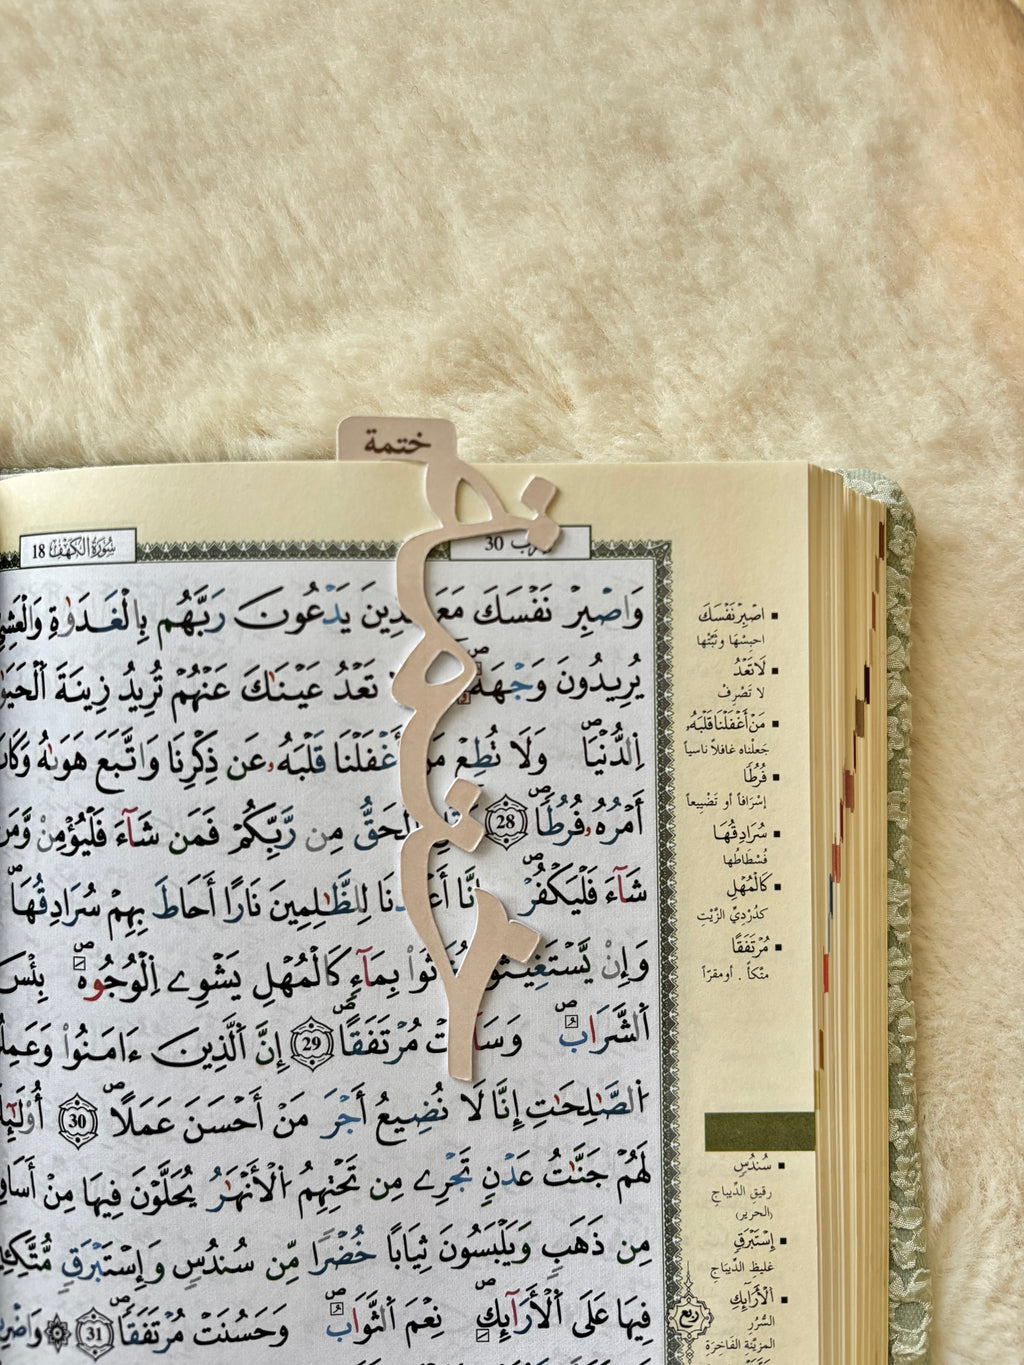 ختمة
سُورَةُ الكَهْف 18
30
وَاصْبِرْ نَفْسَكَ يَدْعُونَ رَبَّهُم بِالْغَدَوٰةِ وَالْعَشِيِّ
يُرِيدُونَ وَجْهَهُ تَعْدُ عَيْنَٰكَ عَنْهُمْ تُرِيدُ زِينَةَ
اِ۬لدُّنْيَا وَلَا تُطِعْ مَنْ أَغْفَلْنَا قَلْبَهُۥ عَن ذِكْرِنَا وَاتَّبَعَ هَوَىٰهُ وَكَانَ
أَمْرُهُۥ فُرُطًا 28 اِ۬لْحَقُّ مِن رَّبِّكُمْ فَمَن شَآءَ فَلْيُؤْمِنْ وَّمَن
شَآءَ فَلْيَكْفُرْ إِنَّا أَعْتَدْنَا لِلظَّٰلِمِينَ نَارًا أَحَاطَ بِهِمْ سُرَادِقُهَا
وَإِنْ يَّسْتَغِيثُوا يُغَاثُوا بِمَآءٍ كَالْمُهْلِ يَشْوِے اِ۬لْوُجُوهَ بِئْسَ
اَ۬لشَّرَابُ وَسَآءَتْ مُرْتَفَقًا 29 إِنَّ اَ۬لَّذِينَ ءَامَنُوا وَعَمِلُوا
اُ۬لصَّٰلِحَٰتِ إِنَّا لَا نُضِيعُ أَجْرَ مَنْ أَحْسَنَ عَمَلًا 30 أُوْلَٰٓئِكَ
لَهُمْ جَنَّٰتُ عَدْنٍ تَجْرِے مِن تَحْتِهِمُ اُ۬لْأَنْهَٰرُ يُحَلَّوْنَ فِيهَا مِنْ
مِن ذَهَبٍ وَيَلْبَسُونَ ثِيَابًا خُضْرًا مِّن سُندُسٍ وَإِسْتَبْرَقٍ
فِيهَا عَلَى اَ۬لْأَرَآئِكِ نِعْمَ اَ۬لثَّوَابُ وَحَسُنَتْ مُرْتَفَقًا 31
اصْبِرْ نَفْسَكَ
احبِسْها وثَبِّتْها
لَا تَعْدُ
لا تَصْرِفْ
مَنْ أَغْفَلْنَا قَلْبَهُۥ
جَعَلْناه غافلاً ناسياً
فُرُطًا
إسْرَافاً أو تَضْيِيعاً
سُرَادِقُهَا
فُسْطَاطُها
كَالْمُهْلِ
كدُرْدِيِّ الزَّيْتِ
مُرْتَفَقًا
متّكأً . أو مقرّاً
سُندُسٍ
رقيقِ الدِّيباجِ
(الحرير)
إِسْتَبْرَقٍ
غليظِ الدِّيباجِ
اَ۬لْأَرَآئِكِ
السُّرُرِ
المزيّنةِ الفَاخِرَةِ
ربع